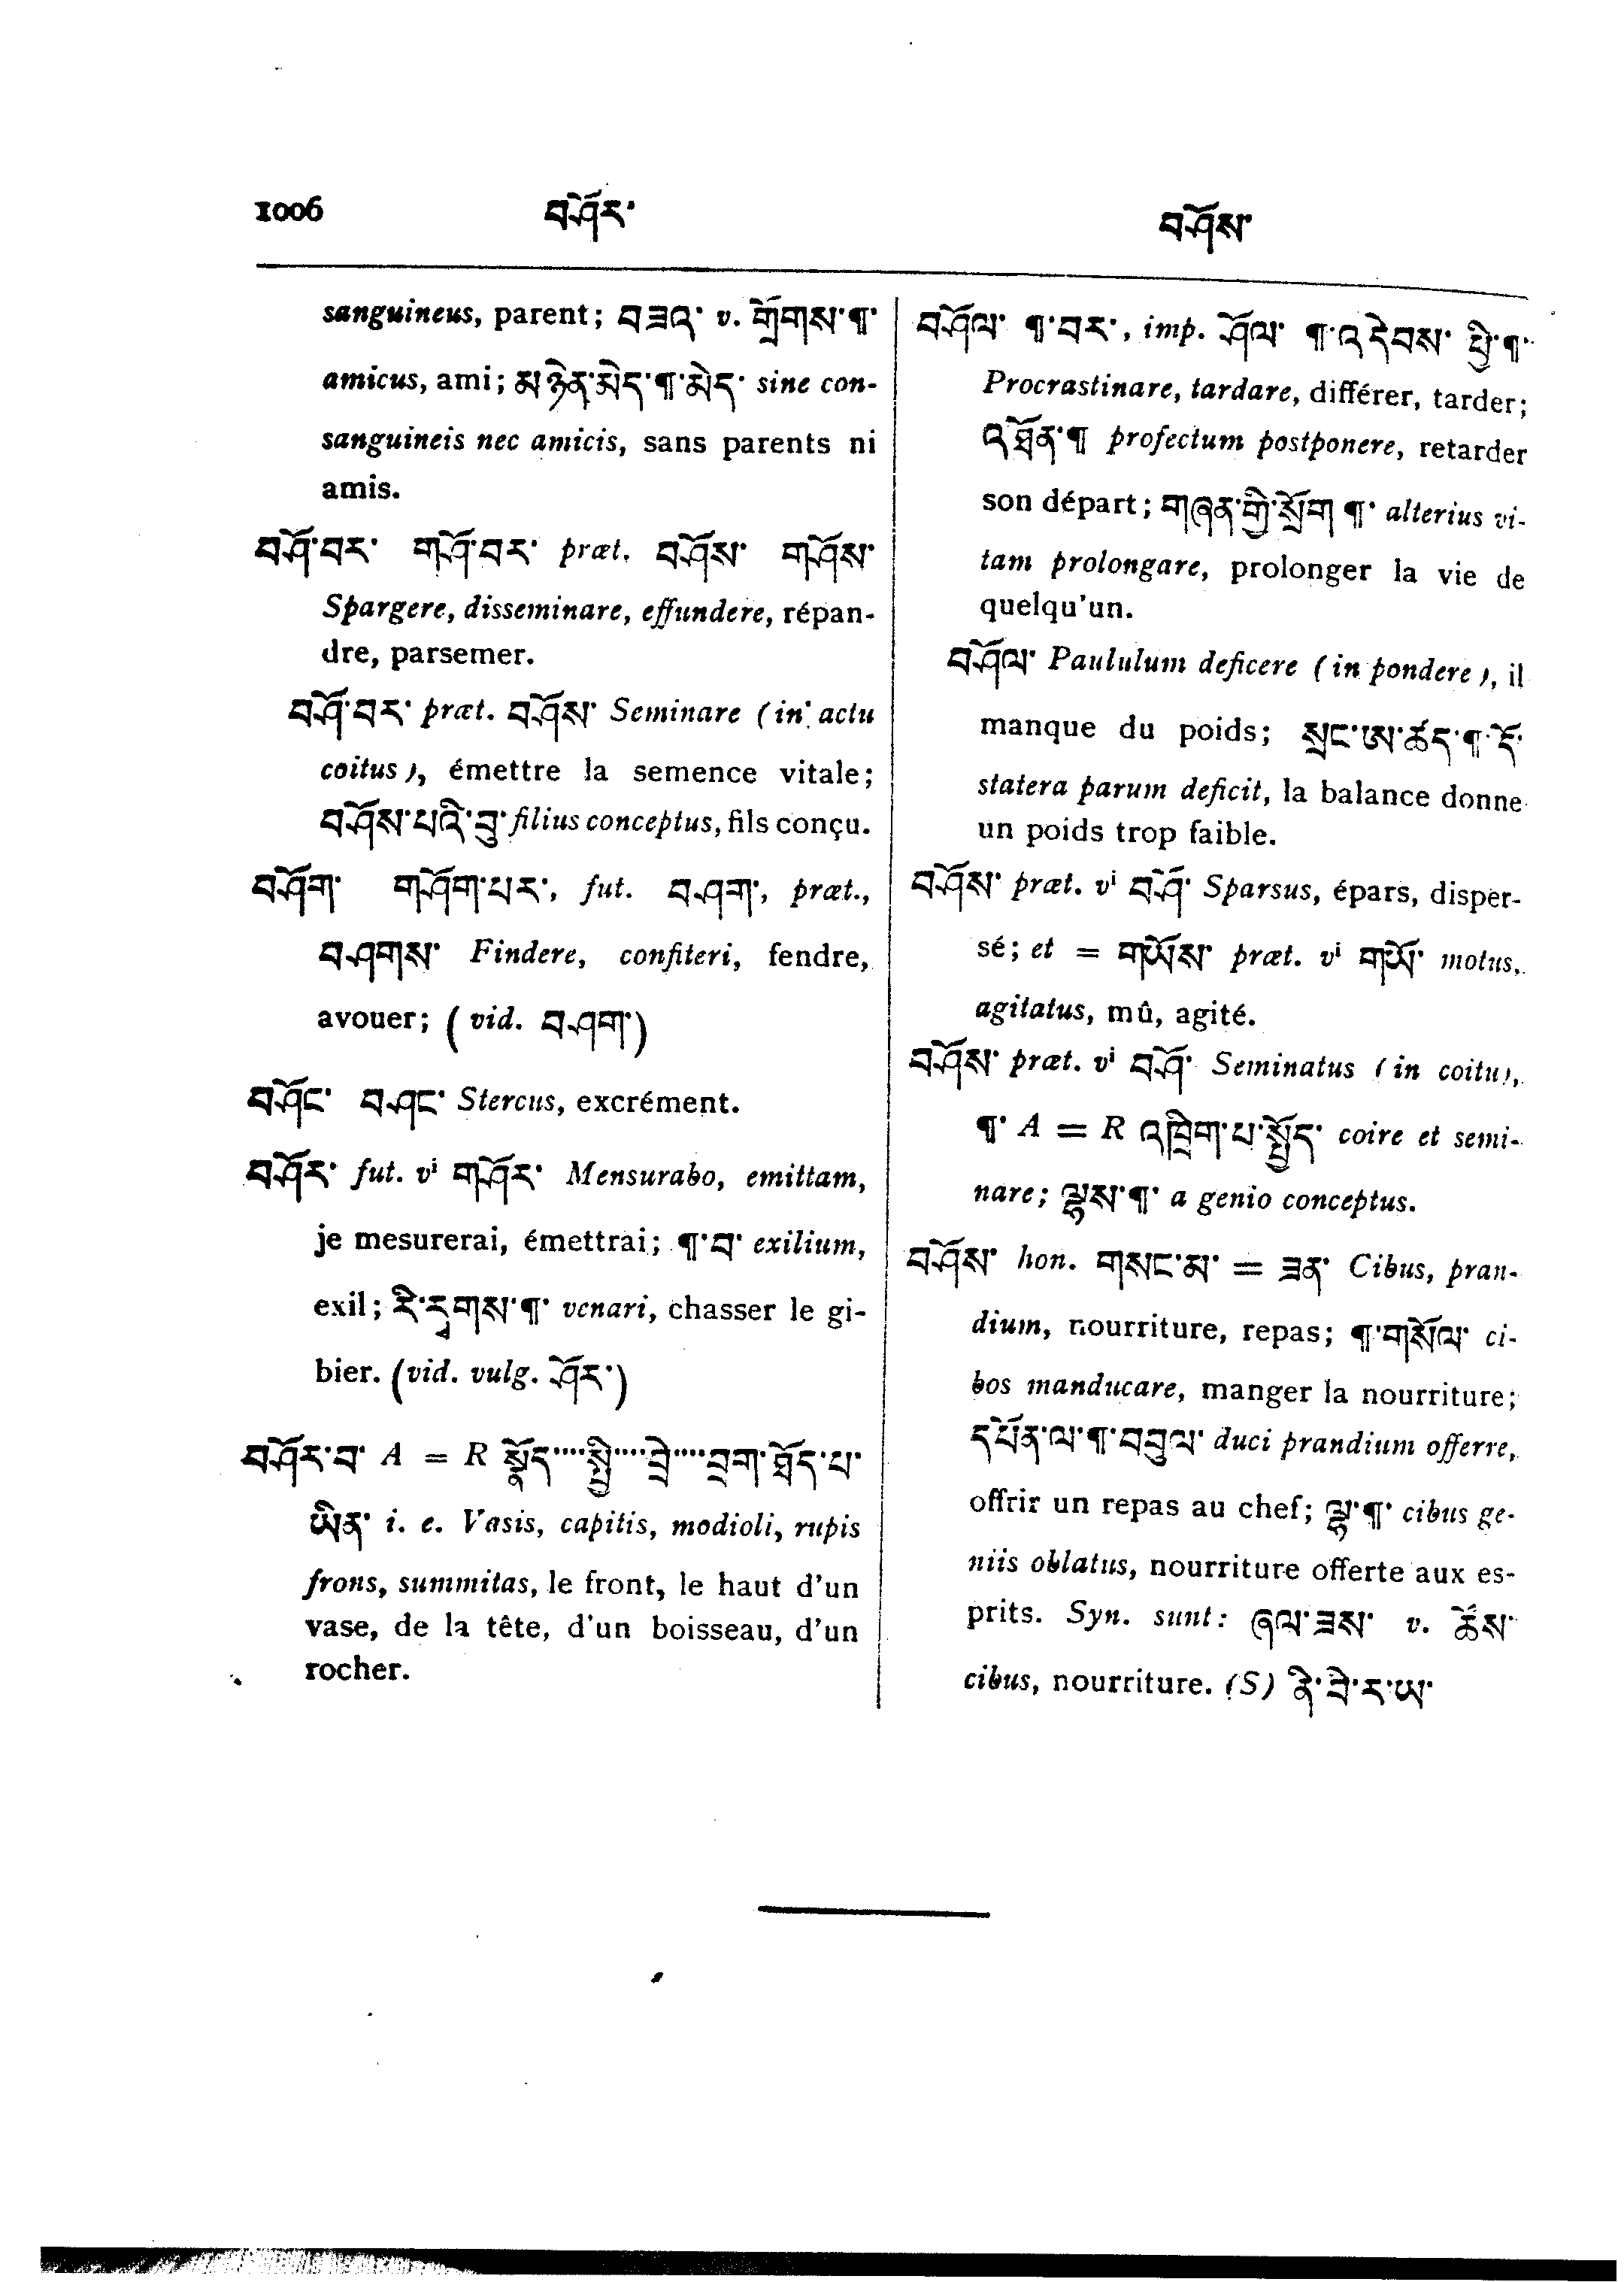 1006 བཤོར་ བཤོས་
sanguineus, parent; བཟའ་ v. གྲོགས་¶་
amicus, ami; མ་ཉེན་མེད་¶་མེད་ sine con-
sanguineis nec amicis, sans parents ni
amis.
བཤོ་བར་ གཤོ་བར་ præt. བཤོས་ གཤོས་
Spargere, disseminare, effundere, répan-
dre, parsemer.
བཤོ་བར་ præt. བཤོས་ Seminare (in actu
coitus), émettre la semence vitale;
བཤོས་པའི་བུ་ filius conceptus, fils conçu.
བཤོག་ གཤོག་པར་, fut. བཤག་, præt.,
བཤགས་ Findere, confiteri, fendre,
avouer; (vid. བཤག་)
བཤོང་ བཤང་ Stercus, excrément.
བཤོར་ fut. vⁱ གཤོར་ Mensurabo, emittam,
je mesurerai, émettrai; ¶་བ་ exilium,
exil; རི་དྭགས་¶་ venari, chasser le gi-
bier. (vid. vulg. ཤོར་)
བཤོར་བ་ A = R སྣོད་....སྤྱི་....བྲེ་....བྲག་ཐོད་པ་
ཡིན་ i. e. Vasis, capitis, modioli, rupis
frons, summitas, le front, le haut d'un
vase, de la tête, d'un boisseau, d'un
rocher.
བཤོལ་ ¶་བར་, imp. ཤོལ་ ¶་འདེབས་ ཕྱི་¶་
Procrastinare, tardare, différer, tarder;
འཐོན་¶ profectum postponere, retarder
son départ; གཞན་གྱི་སྲོག་¶་ alterius vi-
tam prolongare, prolonger la vie de
quelqu'un.
བཤོལ་ Paululum deficere (in pondere), il
manque du poids; སྲང་ཨ་ཚད་¶་ཏོ་
statera parum deficit, la balance donne
un poids trop faible.
བཤོས་ præt. vⁱ བཤོ་ Sparsus, épars, disper-
sé; et = གཡོས་ præt. vⁱ གཡོ་ motus,
agitatus, mû, agité.
བཤོས་ præt. vⁱ བཤོ་ Seminatus (in coitu),
¶་ A = R འཁྲིག་པ་སྤྱོད་ coire et semi-
nare; ལྷས་¶་ a genio conceptus.
བཤོས་ hon. གསང་མ་ = ཟན་ Cibus, pran-
dium, nourriture, repas; ¶་གསོལ་ ci-
bos manducare, manger la nourriture;
དཔོན་ལ་¶་བབུལ་ duci prandium offerre,
offrir un repas au chef; ལྷ་¶་ cibus ge-
niis oblatus, nourriture offerte aux es-
prits. Syn. sunt: ཞལ་ཟས་ v. ཚོས་
cibus, nourriture. (S) ནི་བེ་ར་ཡ་